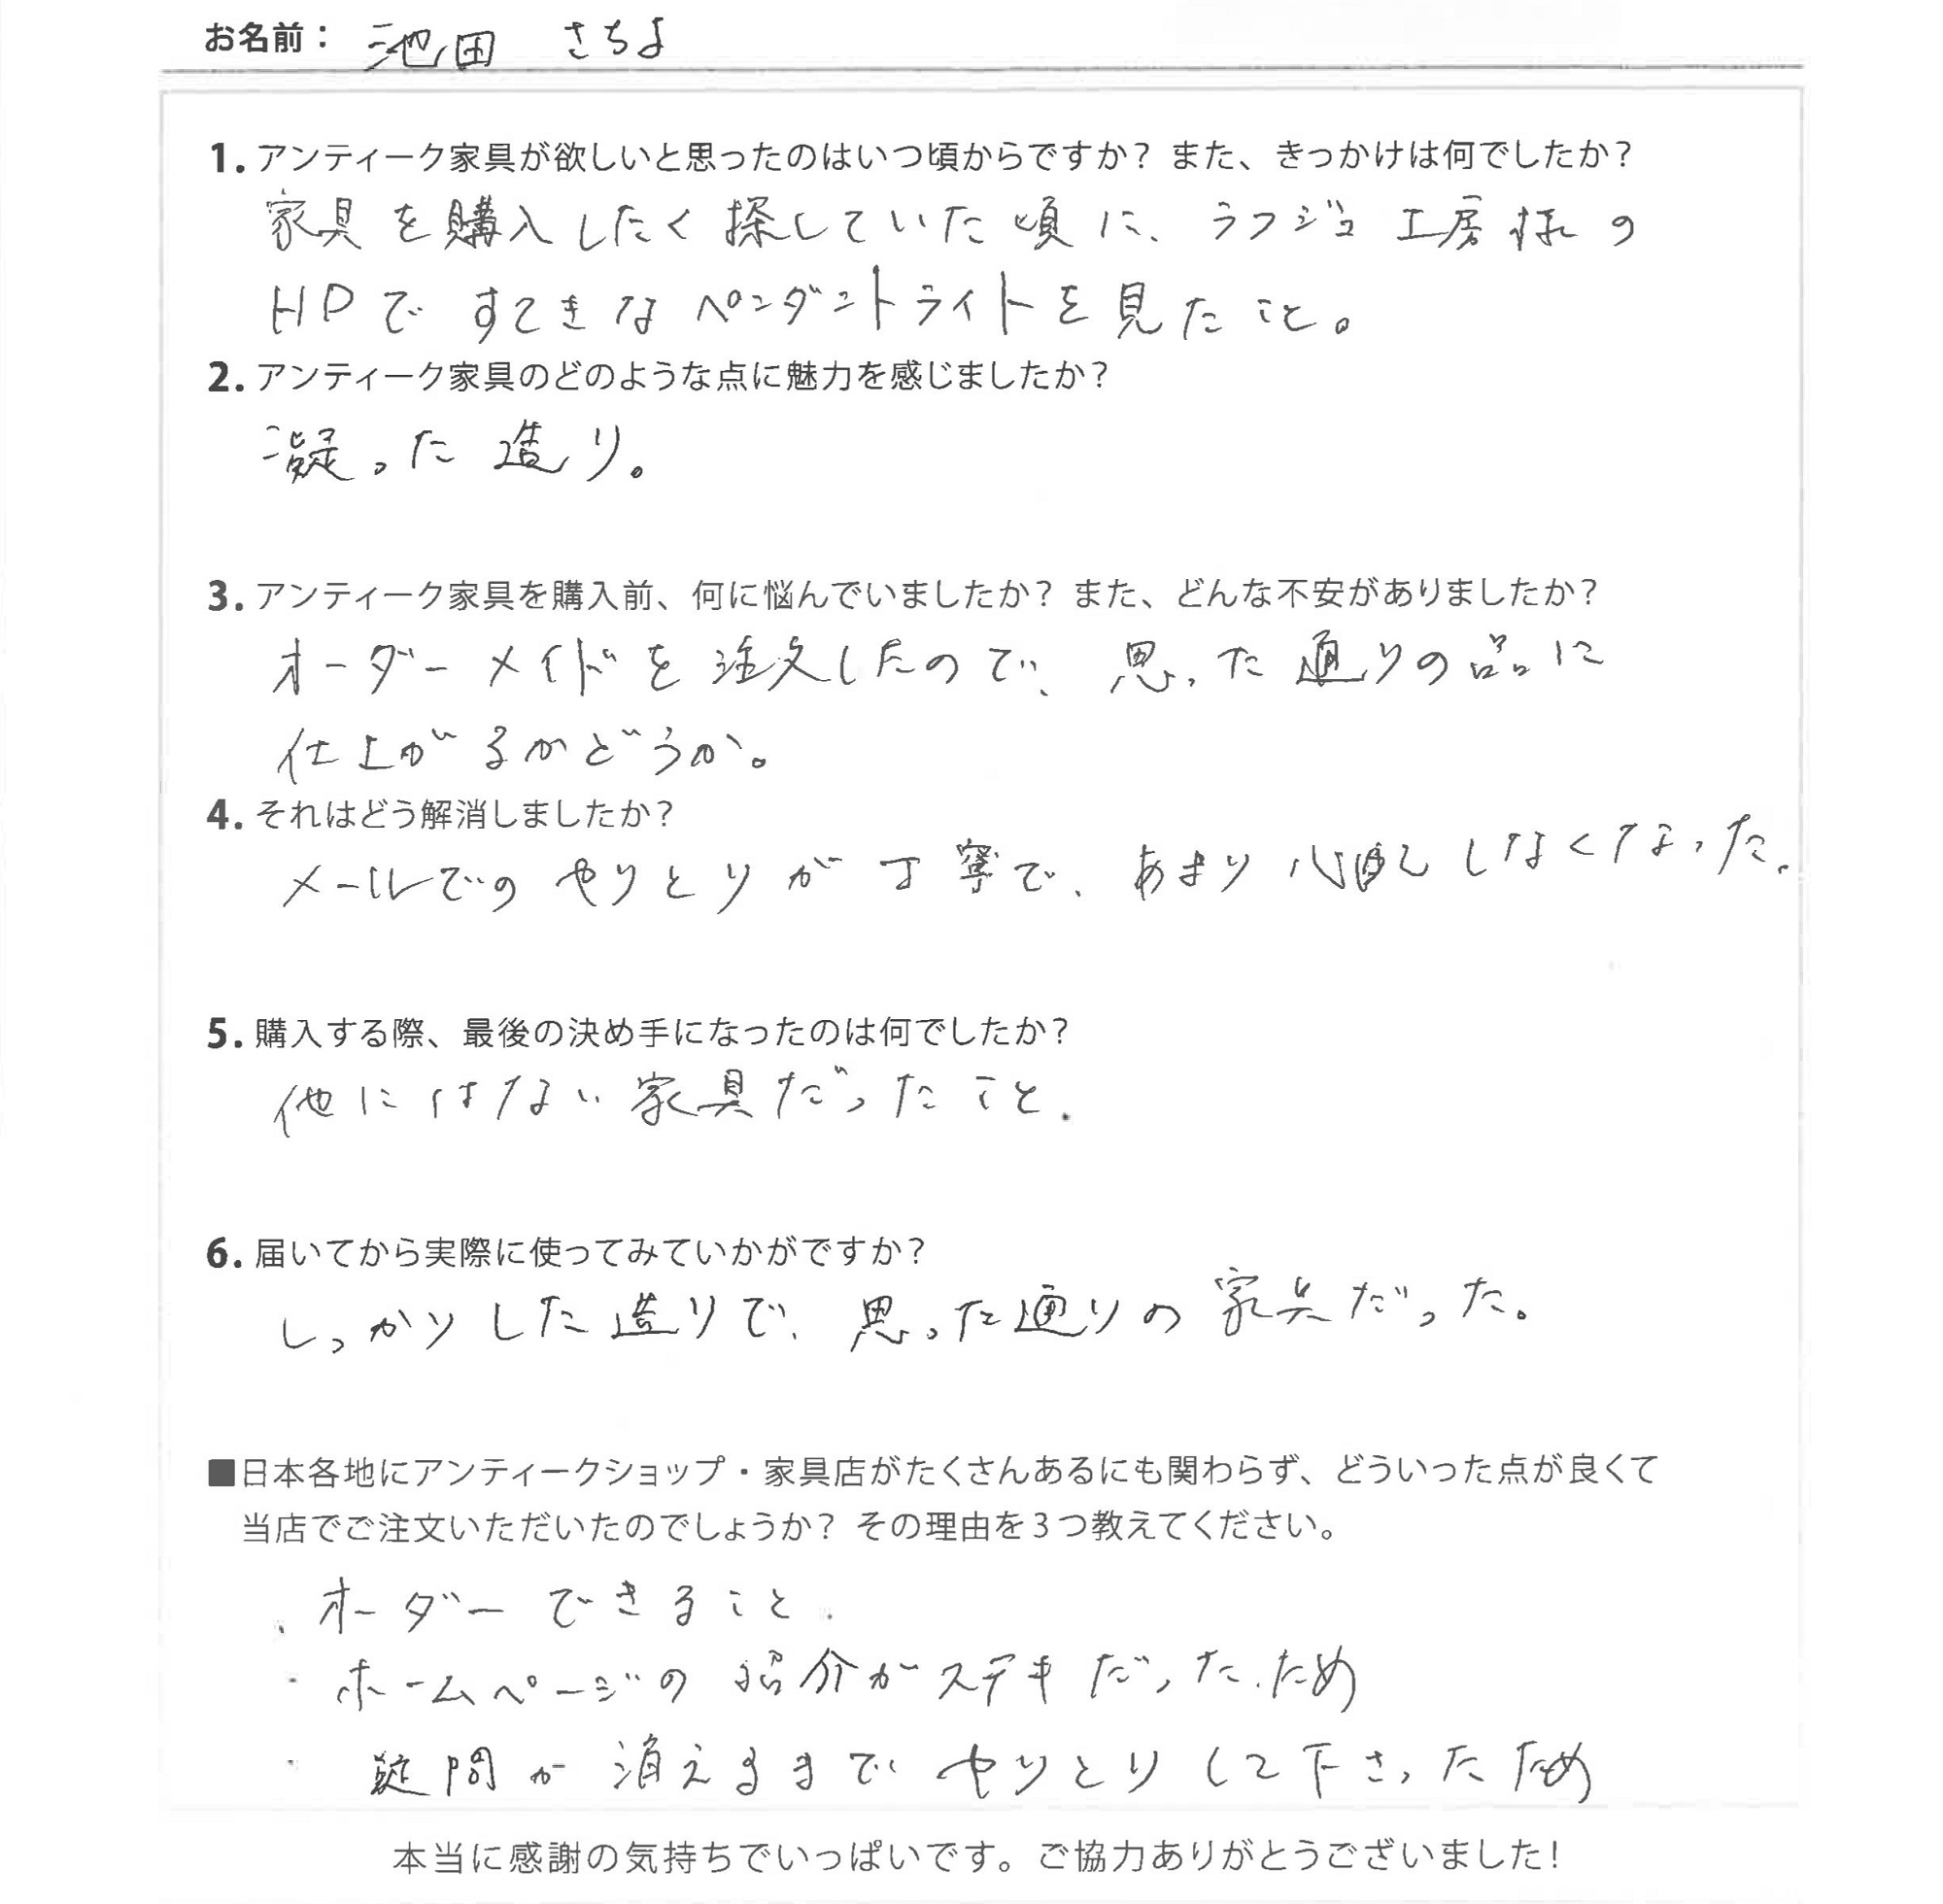 お名前： 池田 さちよ
1. アンティーク家具が欲しいと思ったのはいつ頃からですか？ また、きっかけは何でしたか？
家具を購入したく探していた頃に、ラフジュ工房様の
HPですてきなペンダントライトを見たこと。
2. アンティーク家具のどのような点に魅力を感じましたか？
凝った造り。
3. アンティーク家具を購入前、何に悩んでいましたか？ また、どんな不安がありましたか？
オーダーメイドを注文したので、思った通りの品に
仕上がるかどうか。
4. それはどう解消しましたか？
メールでのやりとりが丁寧で、あまり心配しなくなった.
5. 購入する際、最後の決め手になったのは何でしたか？
他にはない家具だったこと.
6. 届いてから実際に使ってみていかがですか？
しっかりした造りで、思った通りの家具だった。
■日本各地にアンティークショップ・家具店がたくさんあるにも関わらず、どういった点が良くて
当店でご注文いただいたのでしょうか？ その理由を３つ教えてください。
・オーダーできること.
・ホームページの紹介がステキだったため
・疑問が消えるまでやりとりして下さったため
本当に感謝の気持ちでいっぱいです。ご協力ありがとうございました！